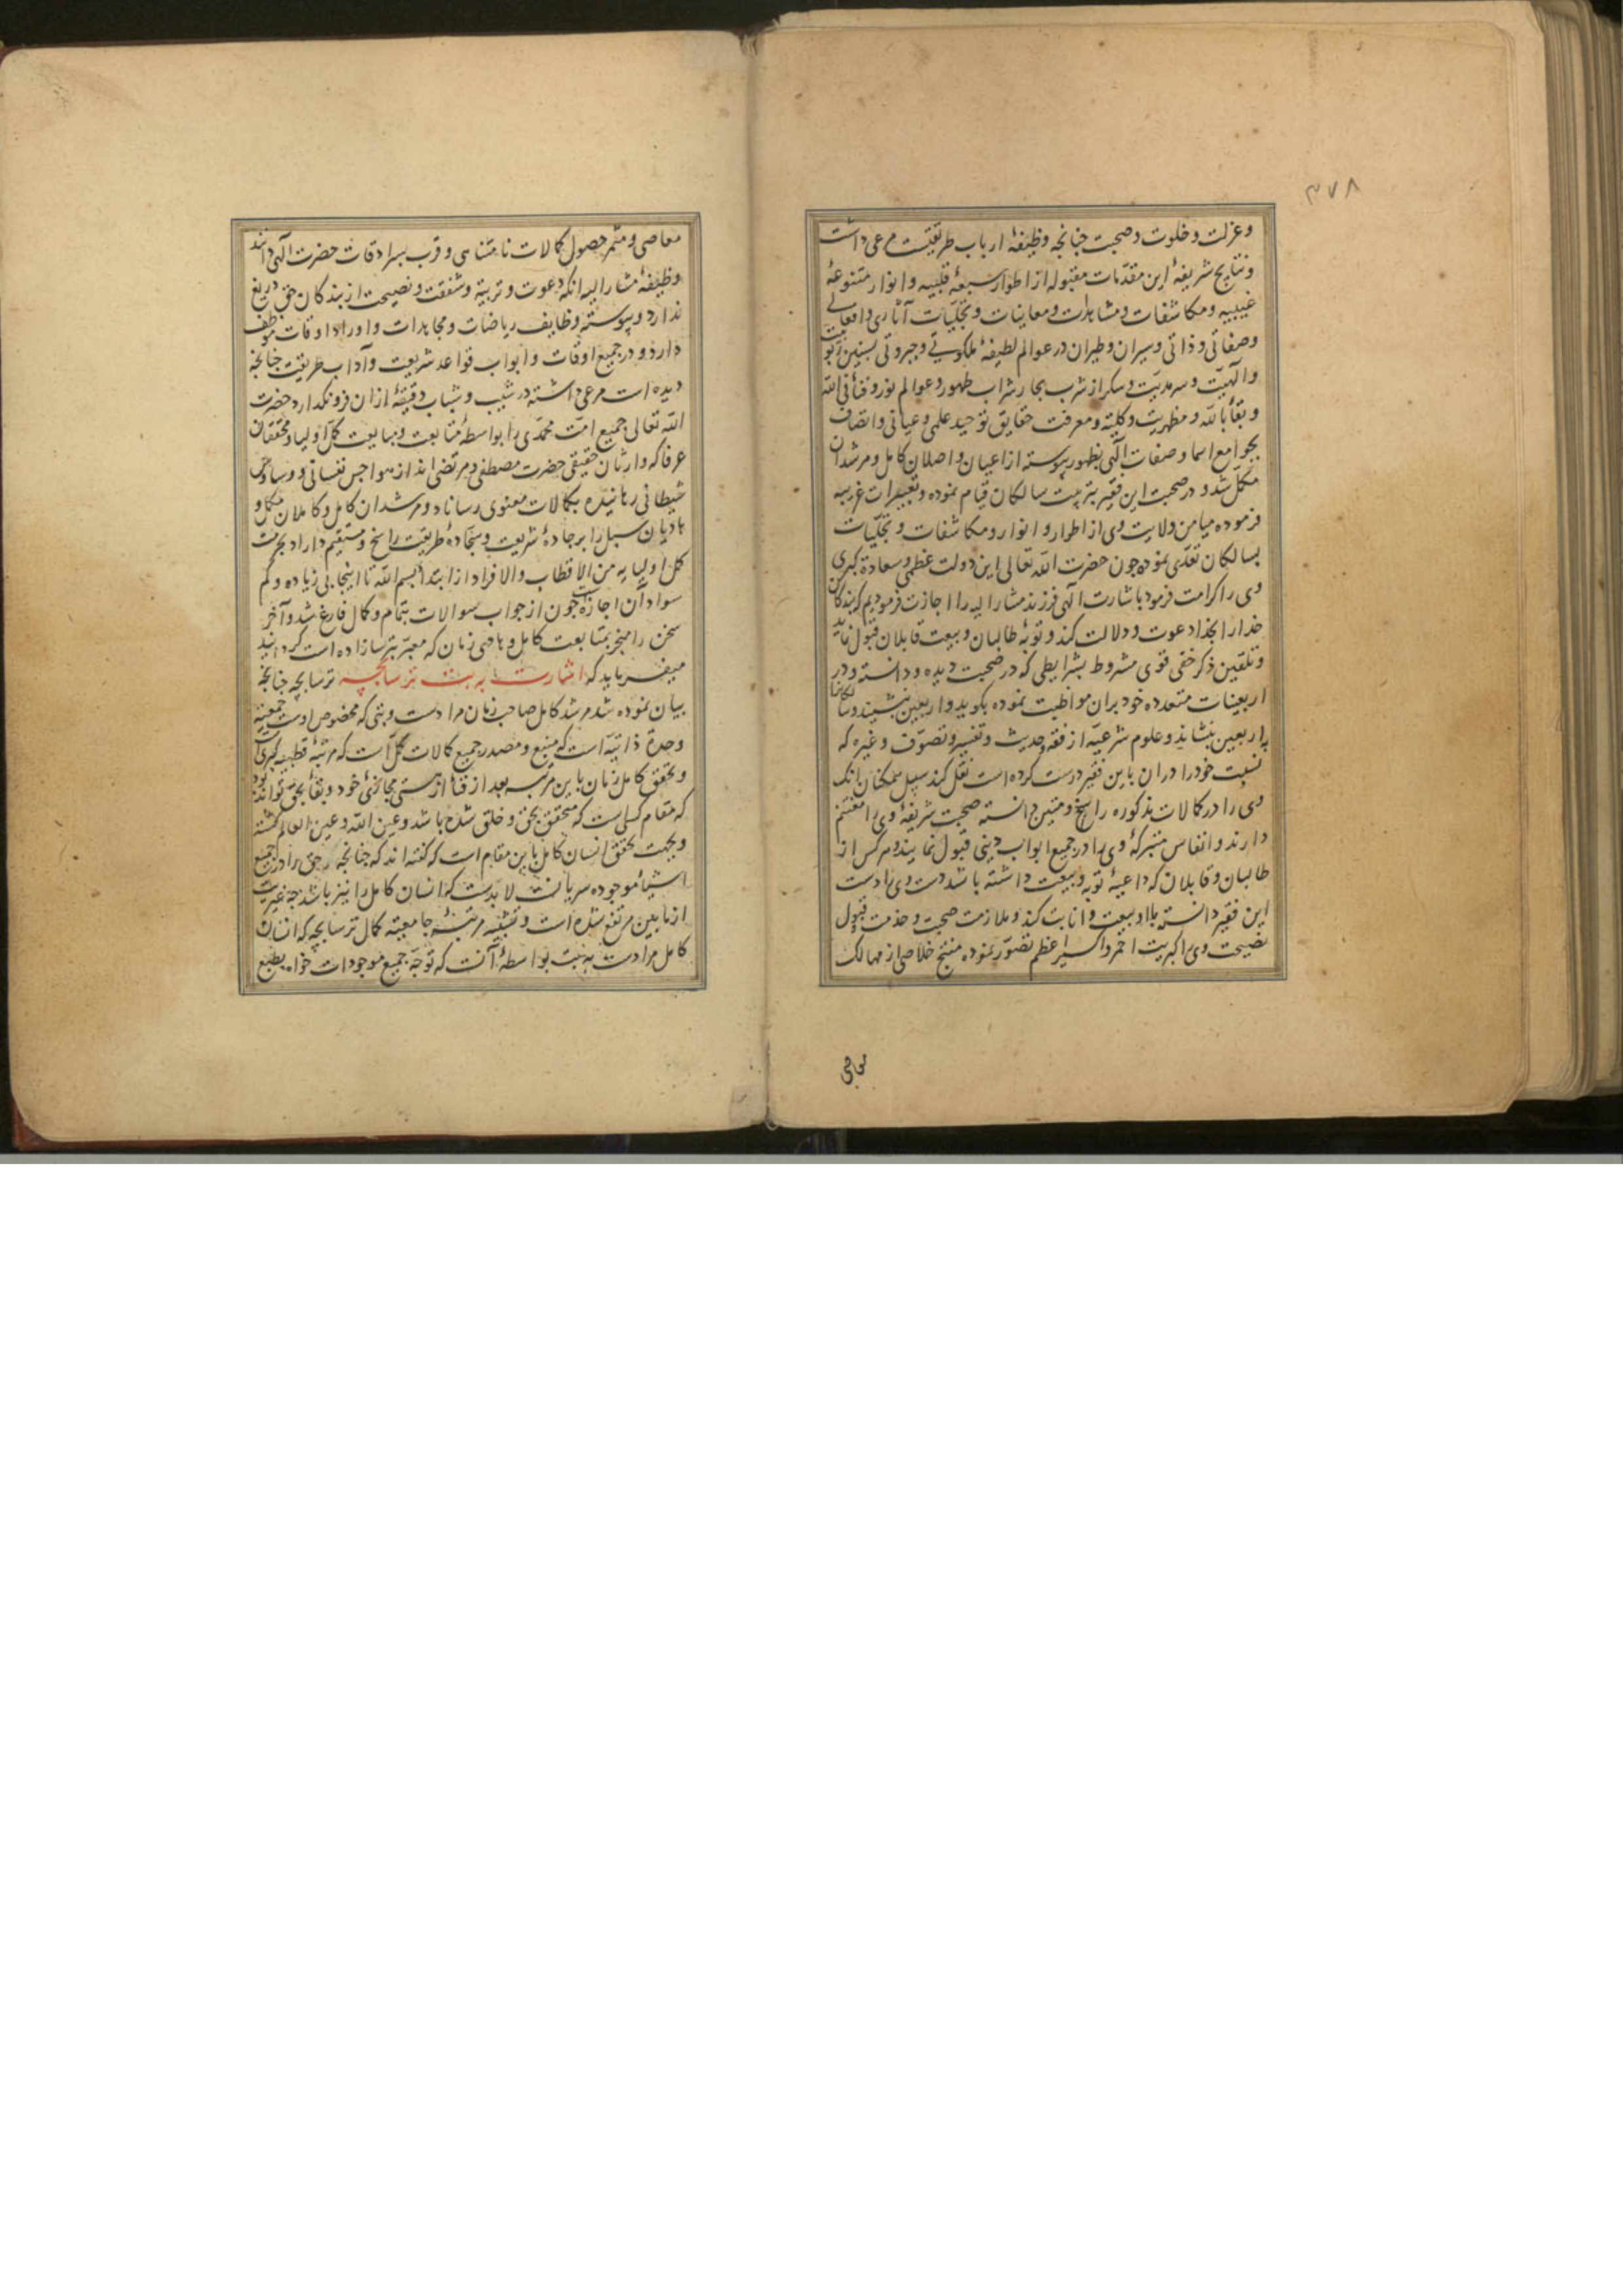 ۳۷۸
وعزلت وخلوت وصحبت چنانچه وظیفهٔ ارباب طریقتست مرعی داشت
ونتایج شریفهٔ این مقدّمات مقبوله از اطوار سبعهٔ قلبیه وانوار متنوعهٔ
غیبیه ومکاشفات ومشاهدات ومعاینات وتجلّیات آثاری وافعالی
وصفاتی وذاتی وسیران وطیران در عوالم لطیفهٔ ملکوتی وجبروتی
والهیّت وسرمدیّت وسکر از شرب بحار شراب طهور وعوالم نور وفنأ فی الله
وبقأ بالله ومظهریت وکلیته ومعرفت حقایق توحید علمی وعیانی واتصاف
بجوامع اسما وصفات الهی بظهور پیوسته از اعیان واصلان کامل ومرشدان
مکمّل شد ودر صحبت این فقیر بتربیت سالکان قیام نموده وتعبیرات غریبه
فرموده میامن ولایت وی از اطوار وانوار ومکاشفات وتجلّیات
بسالکان تعدّی نموده چون حضرت الله تعالی این دولت عظمی وسعادة کبری
وی را کرامت فرمود باشارت الهی فرزند مشارالیه را اجازت فرمودیم که بندکان
خدارا بخدا دعوت ودلالت کند وتوبهٔ طالبان وبیعت قابلان قبول نماید
وتلقین ذکر خفی قوی مشروط بشرایطی که در صحبت دیده ودانسته ودر
اربعینات متعدده خود بران مواظبت نموده بکوید واربعین نشیند وسالکانرا
باربعین بنشاند وعلوم شرعیّه از فقه وحدیث وتفسیر وتصوّف وغیره که
نسبت خودرا دران باین فقیر درست کرده است نقل کند سبیل ممکنان آنک
وی را در کمالات مذکوره راسخ ومتین دانسته صحبت شریفهٔ وی را مغتنم
دارند وانفاس متبرکهٔ وی را در جمیع ابواب دینی قبول نمایند وهرکس از
طالبان وقابلان که داعیهٔ توبه وبیعت داشته باشد دست وی را دست
این فقیر دانسته با او بیعت وانابت کند وملازمت صحبت وخدمت قبول
نصیحت وی را کبریت احمر واکسیر اعظم تصوّر نموده منتج خلاصی از مهالک
معاصی ومثمر حصول کمالات نامتناهی وقرب بسرادقات حضرت الهی دانند
وظیفهٔ مشارالیه آنکه دعوت وتربیة وشفقت ونصیحت از بندکان حق دریغ
ندارد وپیوسته وظایف ریاضات ومجاهدات واوراد اوقات موظف
دارد ودر جمیع اوقات وابواب قواعد شریعت وآداب طریقت چنانچه
دیده است مرعی داشته در شیب وشباب دقیقهٔ ازان فرونکذارد حضرت
الله تعالی جمیع امّت محمّدی را بواسطهٔ متابعت ومبایعت کمّل اولیا ومحققان
عرفا که وارثان حقیقی حضرت مصطفی ومرتضی اند از هواجس نفسانی ووساوس
شیطانی رهانیده بکمالات معنوی رساناد ومرشدان کامل وکاملان مکمل و
هادیان سبل را بر جادهٔ شریعت وسجّادهٔ طریقت راسخ ومستقیم داراد بحرمت
کمّل اولیایه من الاقطاب والافراد از ابتدأ بسم الله تا اینجا بی زیاده وکم
سواد آن اجازتست چون از جواب سوالات بتمام وکمال فارغ شد وآخر
سخن را منجر بمتابعت کامل وهادی زمان که معبّر بترسازاده است کردانید
میفرماید که اشارت به بت ترسابچه ترسابچه چنانچه
بیان نموده شد مرشد کامل صاحب زمان مرادست وبتی که مخصوص اوست جمعیّة
وحدة ذاتیّه است که منبع ومصدر جمیع کمالات کمّل است که مرتبهٔ قطبیة کبری است
وتحقق کامل زمان باین مرتبه بعد از فنأ از هستی مجازئ خود وبقأ بحق تواند بود
که مقام کسی است که متحقق بحق وخلق شده باشد وعین الله وعین العالم کشته
وبجهت تحقق انسان کامل باین مقام است که کفته اند که چنانچه حق را در جمیع
اشیأ موجوده سریانست لابدست که انسان کامل را نیز باشد چه غیریت
از مابین مرتفع شده است وتشبیه مرتبهٔ جامعیّة کمال ترسابچه که انسان
کامل مرادست به بت بواسطهٔ آنست که توجّه جمیع موجودات خواه بطبع